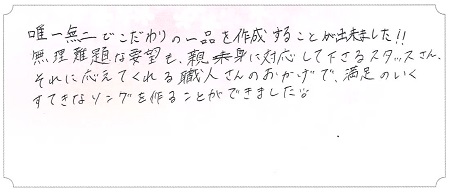 唯一無二でこだわりの一品を作成することが出来ました!!
無理難題な要望も、親身に対応して下さるスタッスさん、
それに応えてくれる職人さんのおかげで、満足のいく
すてきなリングを作ることができました